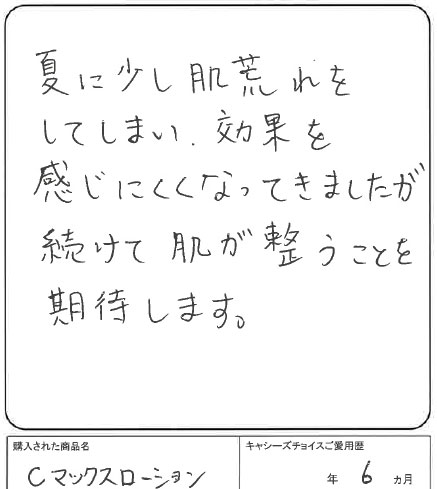 夏に少し肌荒れを
してしまい、効果を
感じにくくなってきましたが
続けて肌が整うことを
期待します。
購入された商品名
キャシーズチョイスご愛用歴
Cマックスローション
年 6 カ月